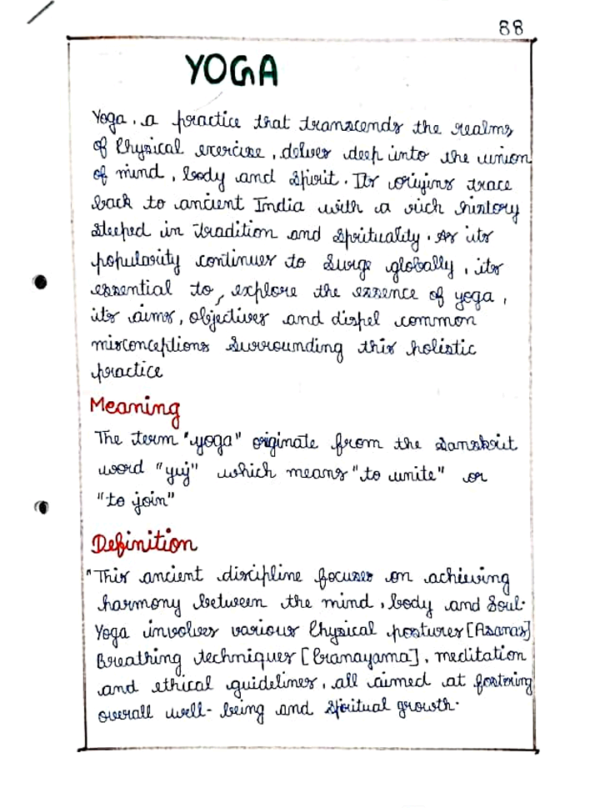 88
YOGA
Yoga, a practice that transcends the realms
of Physical exercise, delves deep into the union
of mind, body and spirit. Its origins trace
back to ancient India with a rich history
steeped in tradition and spirituality. As its
popularity continues to surge globally, its
essential to, explore the essence of yoga,
its aims, objectives and dispel common
misconceptions surrounding this holistic
practice
Meaning
The term "yoga" originate from the Sanskrit
word "yuj" which means "to unite" or
"to join"
Definition
"This ancient discipline focuses on achieving
harmony between the mind, body and Soul.
Yoga involves various Physical postures [Asanas]
Breathing techniques [Pranayama], meditation
and ethical guidelines, all aimed at fostering
overall well-being and spiritual growth.